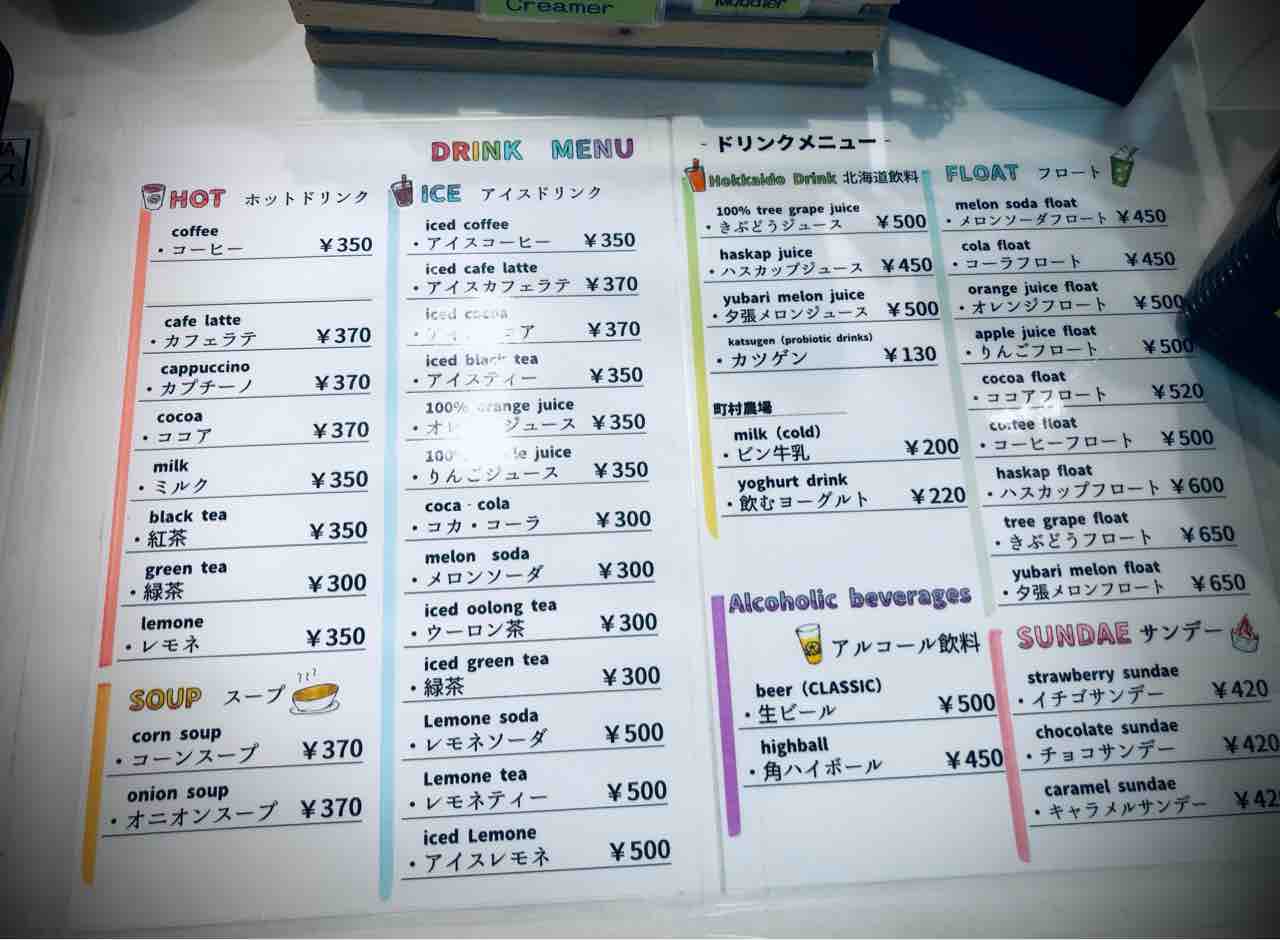 Creamer
Muddler
DRINK MENU
- ドリンクメニュー -
HOT ホットドリンク
coffee
・コーヒー ¥350
cafe latte
・カフェラテ ¥370
cappuccino
・カプチーノ ¥370
cocoa
・ココア ¥370
milk
・ミルク ¥350
black tea
・紅茶 ¥350
green tea
・緑茶 ¥300
lemone
・レモネ ¥350
SOUP スープ
corn soup
・コーンスープ ¥370
onion soup
・オニオンスープ ¥370
ICE アイスドリンク
iced coffee
・アイスコーヒー ¥350
iced cafe latte
・アイスカフェラテ ¥370
iced cocoa
¥370
iced black tea
・アイスティー ¥350
100% orange juice
・オレンジジュース ¥350
juice
・りんごジュース ¥350
coca-cola
・コカ・コーラ ¥300
melon soda
・メロンソーダ ¥300
iced oolong tea
・ウーロン茶 ¥300
iced green tea
・緑茶 ¥300
Lemone soda
・レモネソーダ ¥500
Lemone tea
・レモネティー ¥500
iced Lemone
・アイスレモネ ¥500
Hokkaido Drink 北海道飲料
100% tree grape juice
・きぶどうジュース ¥500
haskap juice
・ハスカップジュース ¥450
yubari melon juice
・夕張メロンジュース ¥500
katsugen (probiotic drinks)
・カツゲン ¥130
町村農場
milk (cold)
・ビン牛乳 ¥200
yoghurt drink
・飲むヨーグルト ¥220
Alcoholic beverages
アルコール飲料
beer (CLASSIC)
・生ビール ¥500
highball
・角ハイボール ¥450
FLOAT フロート
melon soda float
・メロンソーダフロート ¥450
cola float
・コーラフロート ¥450
orange juice float
・オレンジフロート ¥500
apple juice float
・りんごフロート ¥500
cocoa float
・ココアフロート ¥520
coffee float
・コーヒーフロート ¥500
haskap float
・ハスカップフロート ¥600
tree grape float
・きぶどうフロート ¥650
yubari melon float
・夕張メロンフロート ¥650
SUNDAE サンデー
strawberry sundae
・イチゴサンデー ¥420
chocolate sundae
・チョコサンデー ¥420
caramel sundae
・キャラメルサンデー ¥42